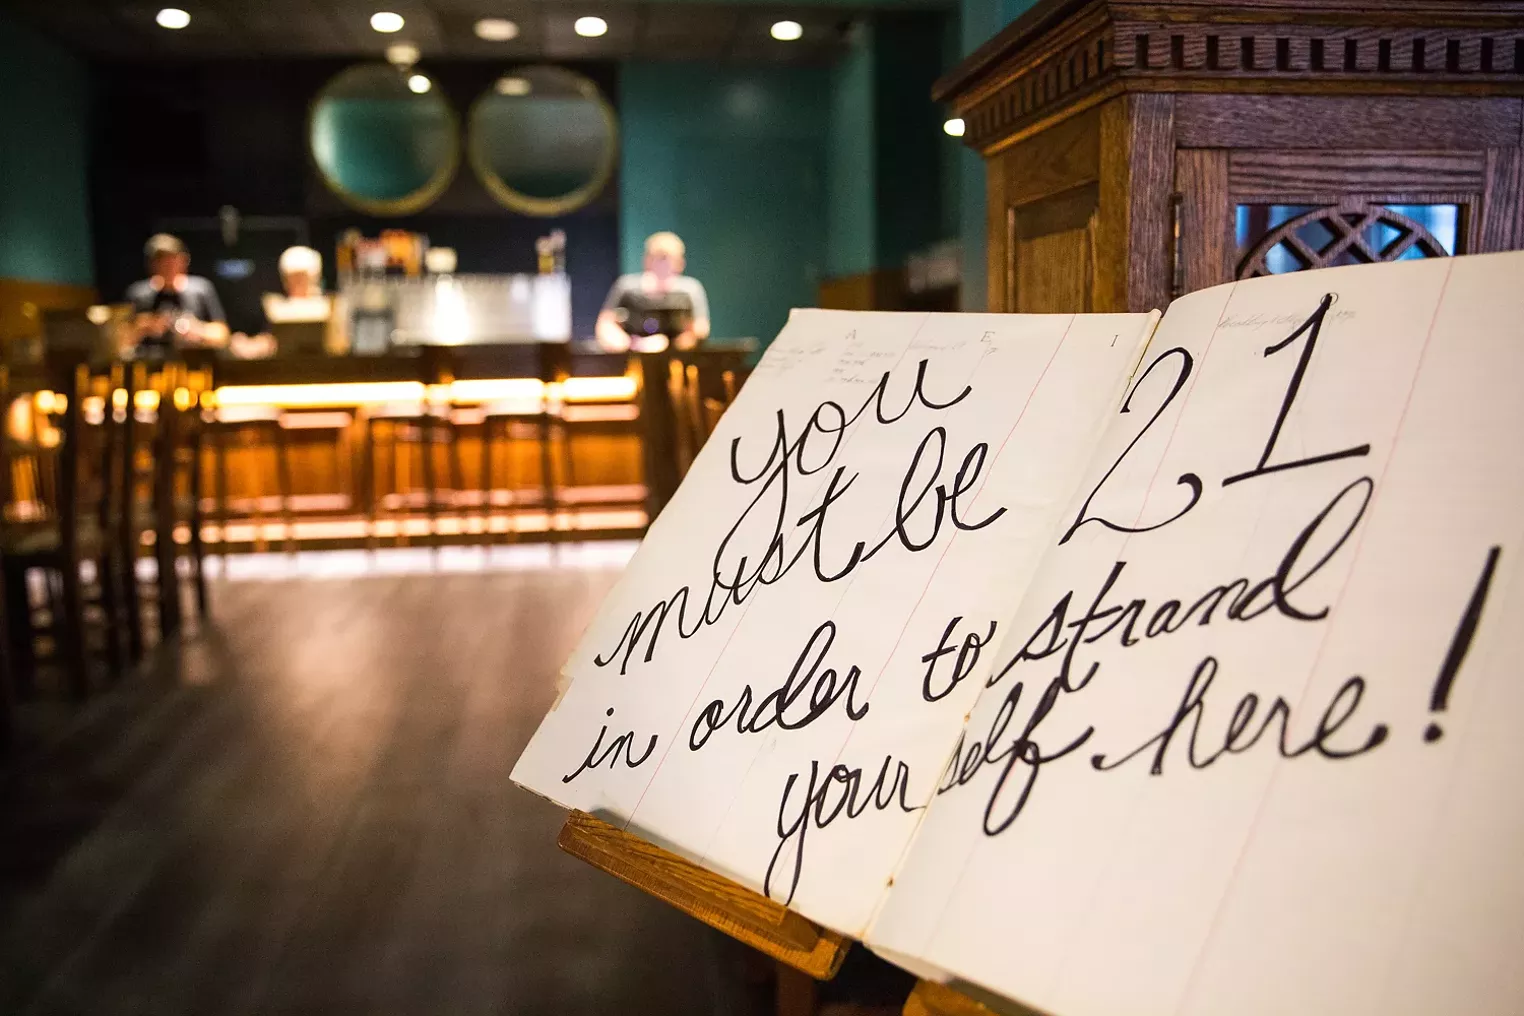 A E I
you
must be 21
in order to strand
yourself here!